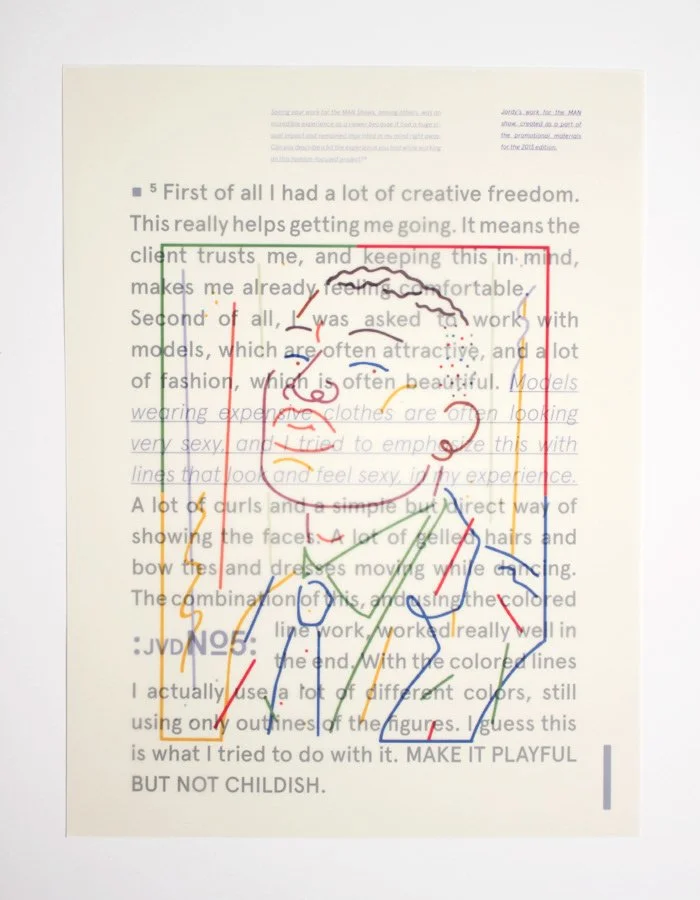 Seeing your work for the MAN Shows, among others, was an
incredible experience as a viewer because it had a huge vi-
sual impact and remained in my mind right away.
Can you describe a bit the experience you had while working
on this fashion-focused project?
Jordy's work for the MAN
show, created as a part of
the promotional materials
for the 2013 edition.
■ ⁵ First of all I had a lot of creative freedom.
This really helps getting me going. It means the
client trusts me, and keeping this in mind,
makes me already feeling comfortable.
Second of all, I was asked to work with
models, which are often attractive, and a lot
of fashion, which is often beautiful. Models
wearing expensive clothes are often looking
very sexy, and I tried to emphasize this with
lines that look and feel sexy, in my experience.
A lot of curls and a simple but direct way of
showing the faces. A lot of gelled hairs and
bow ties and dresses moving while dancing.
The combination of this, and using the colored
:JVDNº5: line work, worked really well in
the end. With the colored lines
I actually use a lot of different colors, still
using only outlines of the figures. I guess this
is what I tried to do with it. MAKE IT PLAYFUL
BUT NOT CHILDISH.